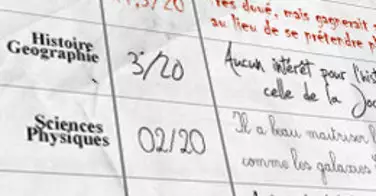 ,5/20
très doué, mais gagnerait
au lieu de se prétendre pl
Histoire
Geographie
3/20
Aucun intérêt pour l'hist
celle de la Joc
Sciences
Physiques
02/20
Il a beau maitriser l
comme les galaxies